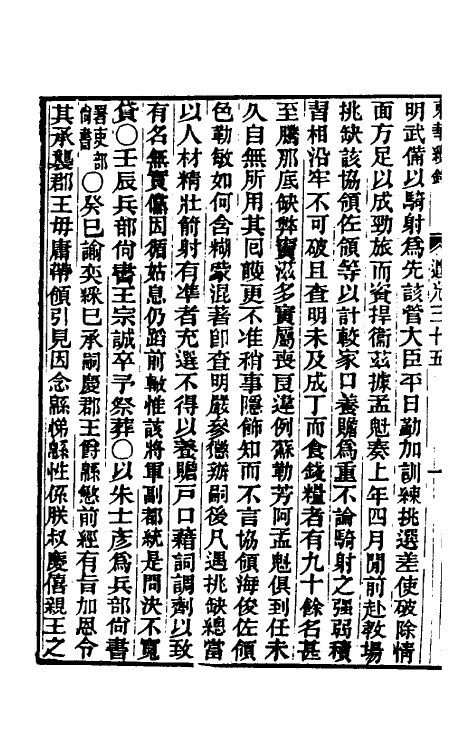 東華續錄　道光三十五
明武備以騎射爲先該管大臣平日勤加訓練挑選差使破除情
面方足以成勁旅而資捍衞茲據孟魁奏上年四月閒前赴教場
挑缺該協領佐領等以計較家口養贍爲重不論騎射之强弱積
習相沿牢不可破且查明未及成丁而食錢糧者有九十餘名甚
至騰那底缺弊竇滋多實屬喪良違例蘇勒芳阿孟魁俱到任未
久自無所用其囘護更不准稍事隱飾知而不言協領海俊佐領
色勒敏如何含糊蒙混著卽查明嚴參懲辦嗣後凡遇挑缺總當
以人材精壯箭射有準者充選不得以養贍戶口藉詞調劑以致
有名無實儻因循姑息仍蹈前轍惟該將軍副都統是問決不寬
貸〇壬辰兵部尙書王宗誠卒予祭葬〇以朱士彥爲兵部尙書
署吏部
尙書〇癸巳諭奕綵巳承嗣慶郡王爵緜慜前經有旨加恩令
其承襲郡王毋庸帶領引見因念緜悌緜性係朕叔慶僖親王之